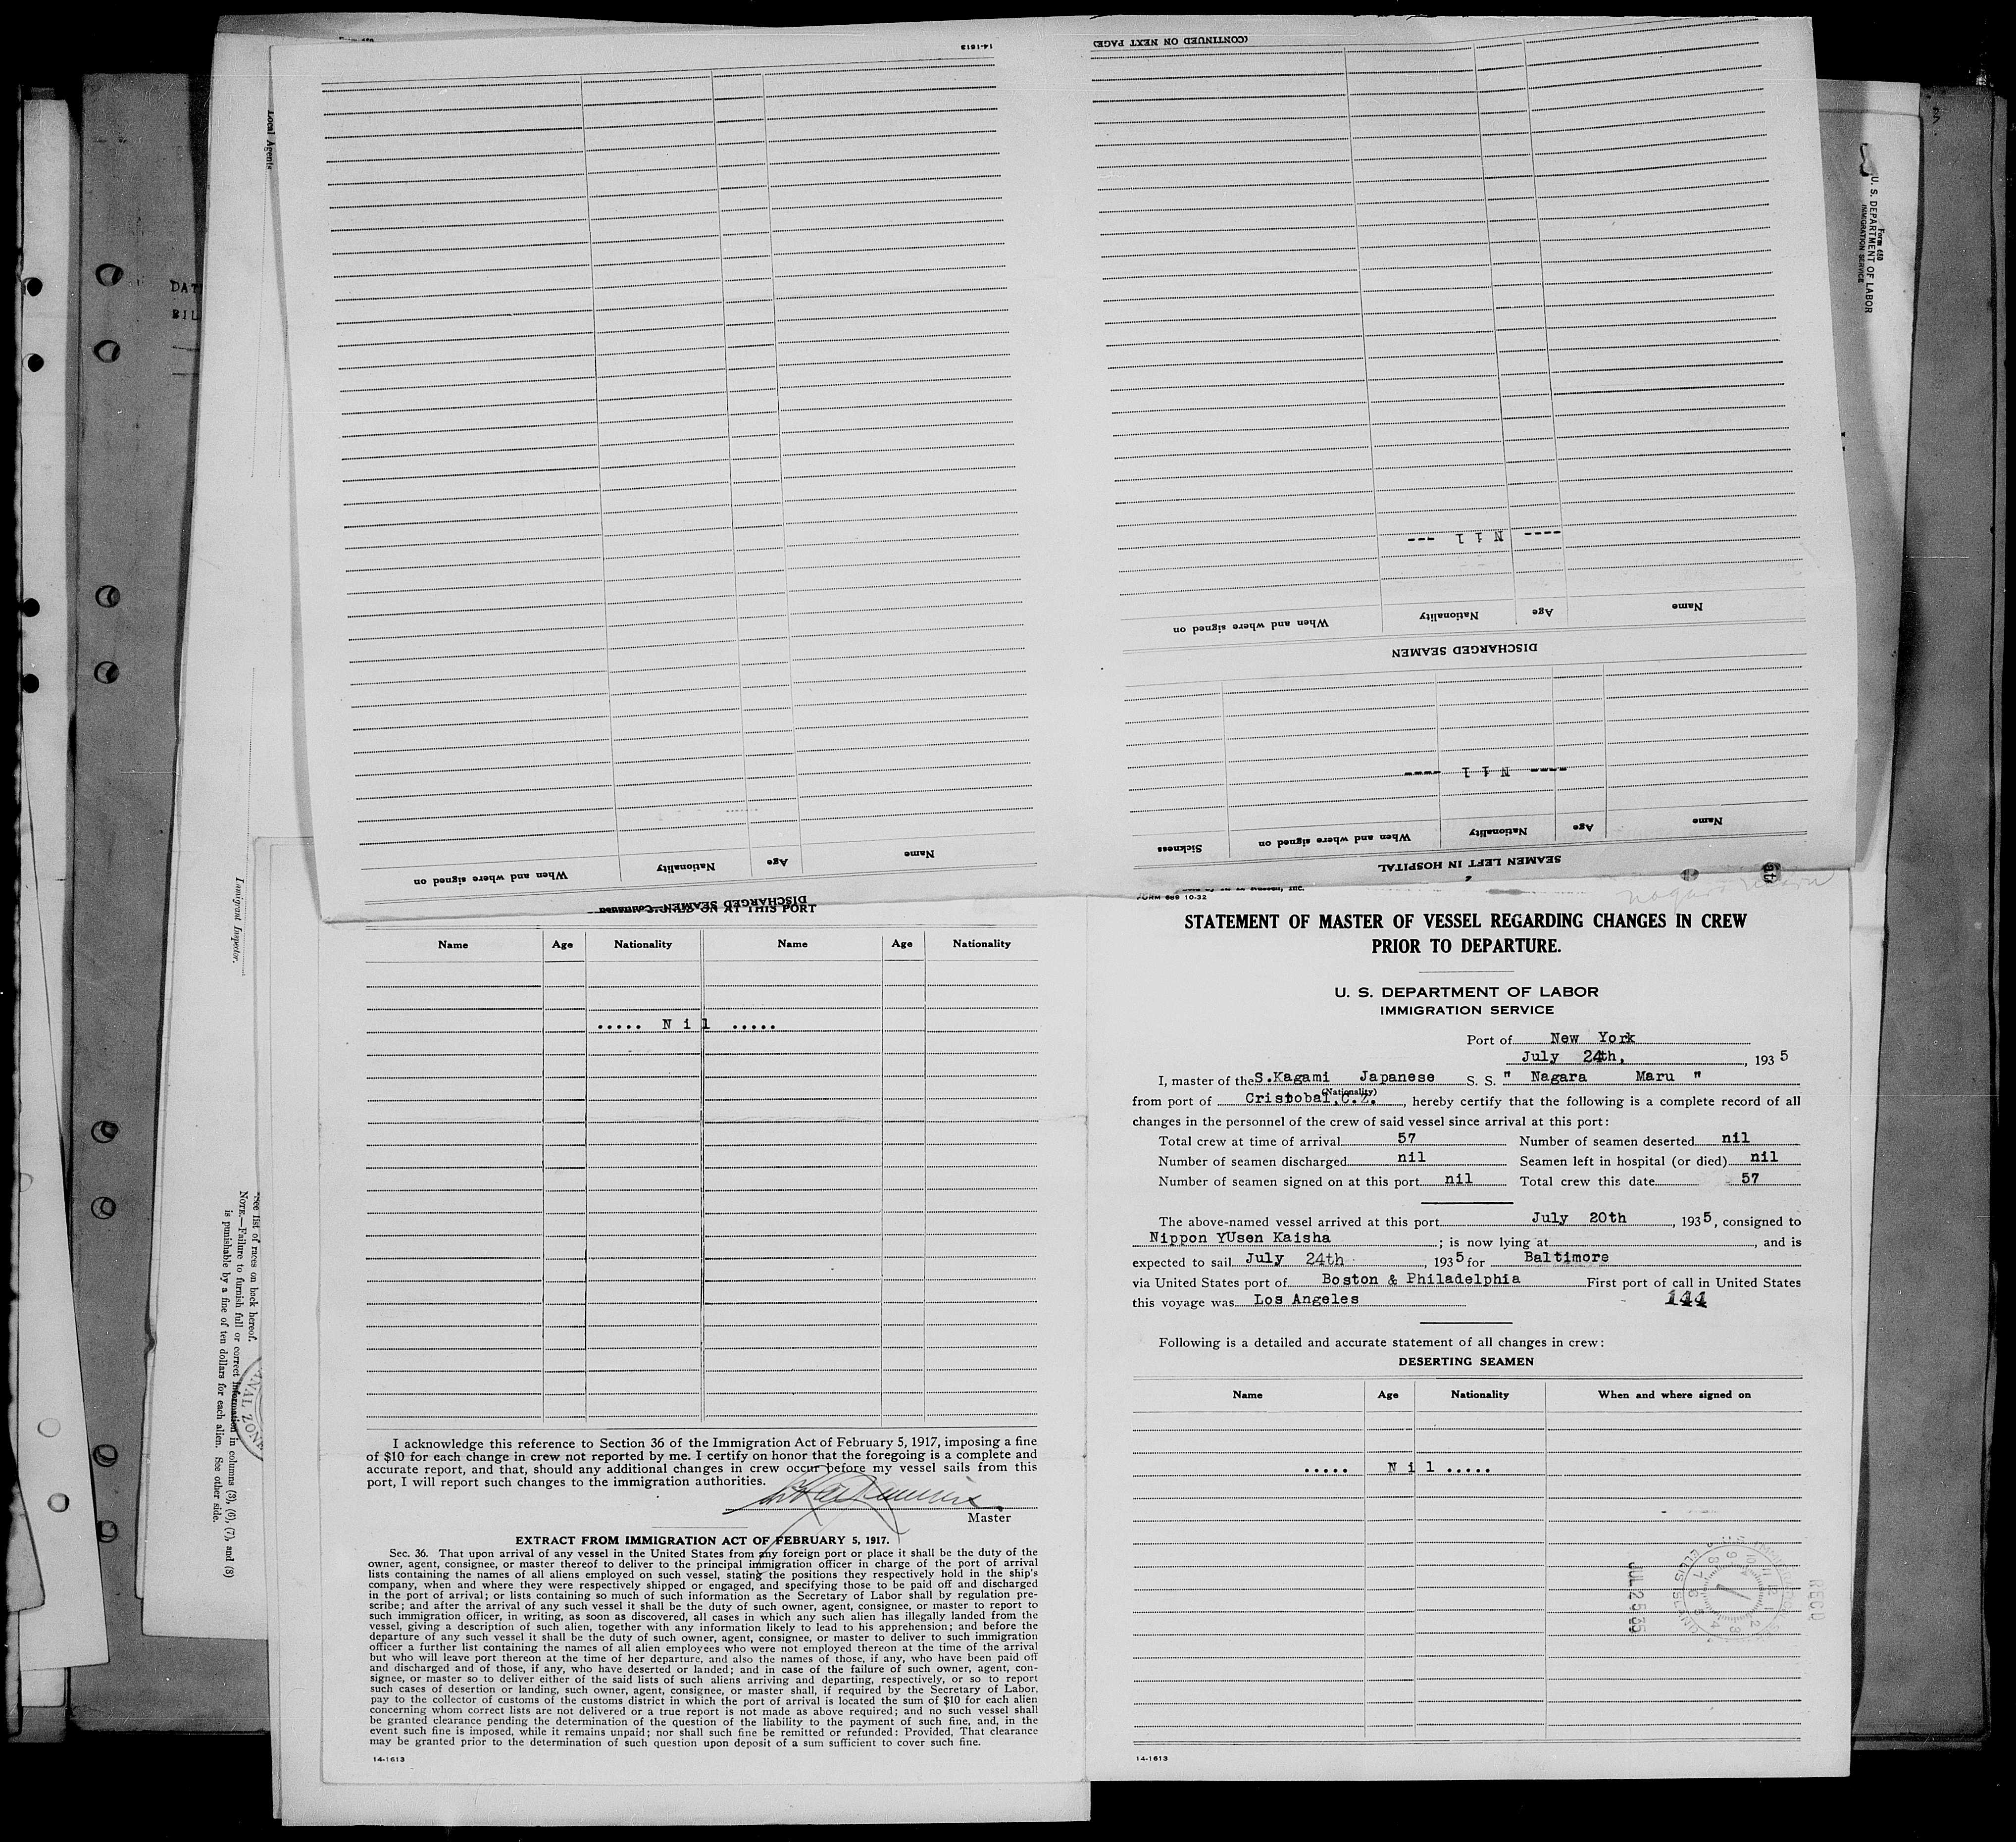 14-1613
Name Age Nationality When and where signed on
DISCHARGED SEAMEN—Continued
(CONTINUED ON NEXT PAGE)
---- N i l ---
Name Age Nationality When and where signed on
DISCHARGED SEAMEN
---- N i l ----
Name Age Nationality When and where signed on Sickness
SEAMEN LEFT IN HOSPITAL
Form 689
U. S. DEPARTMENT OF LABOR
IMMIGRATION SERVICE
Local Agents
DAT
Immigrant Inspector.
See list of races on back hereof.
NOTE.—Failure to furnish full or correct information in columns (3), (6), (7), and (8)
is punishable by a fine of ten dollars for each alien. See other side.
ON AT THIS PORT
Name Age Nationality Name Age Nationality
..... N i l .....
I acknowledge this reference to Section 36 of the Immigration Act of February 5, 1917, imposing a fine
of $10 for each change in crew not reported by me. I certify on honor that the foregoing is a complete and
accurate report, and that, should any additional changes in crew occur before my vessel sails from this
port, I will report such changes to the immigration authorities.
Master
EXTRACT FROM IMMIGRATION ACT OF FEBRUARY 5, 1917.
Sec. 36. That upon arrival of any vessel in the United States from any foreign port or place it shall be the duty of the
owner, agent, consignee, or master thereof to deliver to the principal immigration officer in charge of the port of arrival
lists containing the names of all aliens employed on such vessel, stating the positions they respectively hold in the ship's
company, when and where they were respectively shipped or engaged, and specifying those to be paid off and discharged
in the port of arrival; or lists containing so much of such information as the Secretary of Labor shall by regulation pre-
scribe; and after the arrival of any such vessel it shall be the duty of such owner, agent, consignee, or master to report to
such immigration officer, in writing, as soon as discovered, all cases in which any such alien has illegally landed from the
vessel, giving a description of such alien, together with any information likely to lead to his apprehension; and before the
departure of any such vessel it shall be the duty of such owner, agent, consignee, or master to deliver to such immigration
officer a further list containing the names of all alien employees who were not employed thereon at the time of the arrival
but who will leave port thereon at the time of her departure, and also the names of those, if any, who have been paid off
and discharged and of those, if any, who have deserted or landed; and in case of the failure of such owner, agent, con-
signee, or master so to deliver either of the said lists of such aliens arriving and departing, respectively, or so to report
such cases of desertion or landing, such owner, agent, consignee, or master shall, if required by the Secretary of Labor,
pay to the collector of customs of the customs district in which the port of arrival is located the sum of $10 for each alien
concerning whom correct lists are not delivered or a true report is not made as above required; and no such vessel shall
be granted clearance pending the determination of the question of the liability to the payment of such fine, and, in the
event such fine is imposed, while it remains unpaid; nor shall such fine be remitted or refunded: Provided, That clearance
may be granted prior to the determination of such question upon deposit of a sum sufficient to cover such fine.
14-1613
Nagara Maru
FORM 689 10-32
STATEMENT OF MASTER OF VESSEL REGARDING CHANGES IN CREW
PRIOR TO DEPARTURE.
U. S. DEPARTMENT OF LABOR
IMMIGRATION SERVICE
Port of New York
July 24th, , 1935
I, master of the S.Kagami Japanese S. S. " Nagara Maru "
(Nationality)
from port of Cristobal,C.Z. , hereby certify that the following is a complete record of all
changes in the personnel of the crew of said vessel since arrival at this port:
Total crew at time of arrival 57 Number of seamen deserted nil
Number of seamen discharged nil Seamen left in hospital (or died) nil
Number of seamen signed on at this port nil Total crew this date 57
The above-named vessel arrived at this port July 20th , 1935, consigned to
Nippon YUsen Kaisha ; is now lying at , and is
expected to sail July 24th , 1935 for Baltimore
via United States port of Boston & Philadelphia First port of call in United States
this voyage was Los Angeles 144
Following is a detailed and accurate statement of all changes in crew:
DESERTING SEAMEN
Name Age Nationality When and where signed on
..... N i l .....
REC'D
JUL 25 35
14-1613